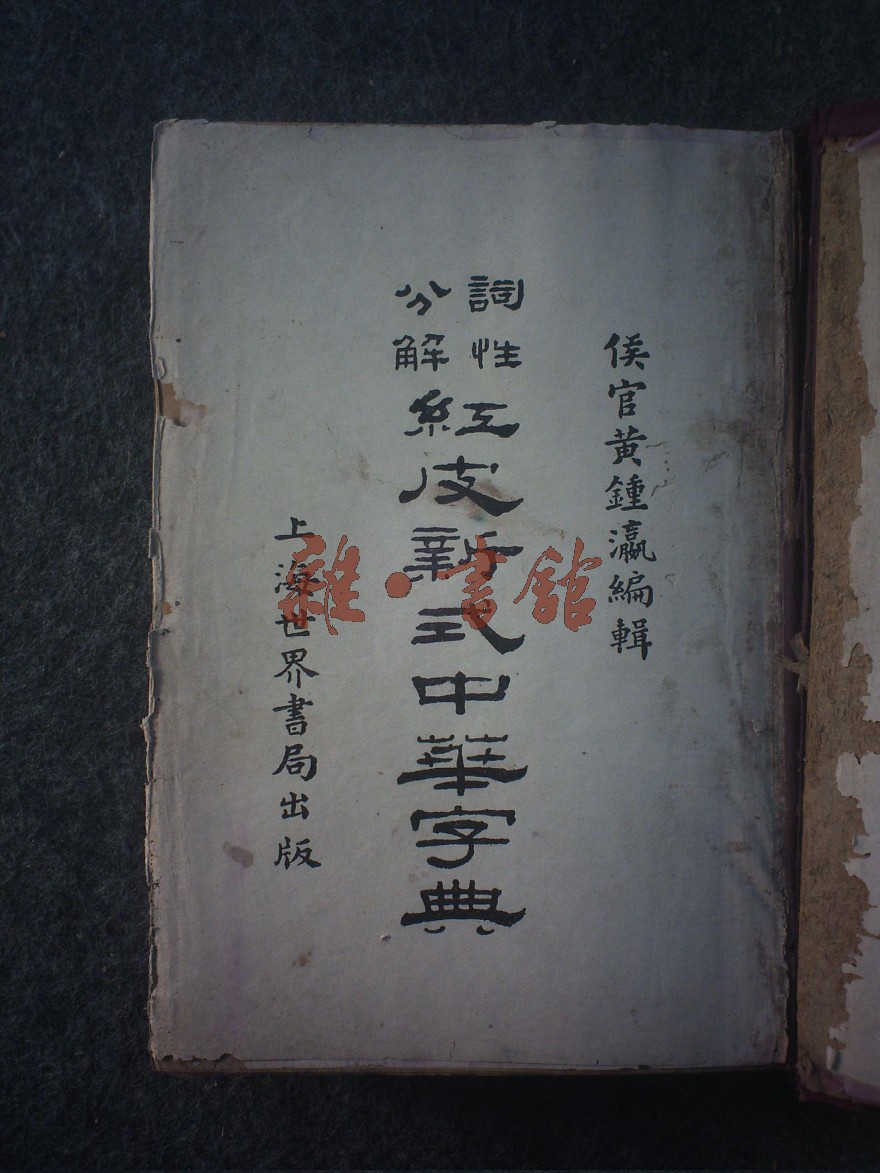 侯官黃鍾瀛編輯
詞性
分解
紅皮新式中華字典
上海世界書局出版
雜·書館